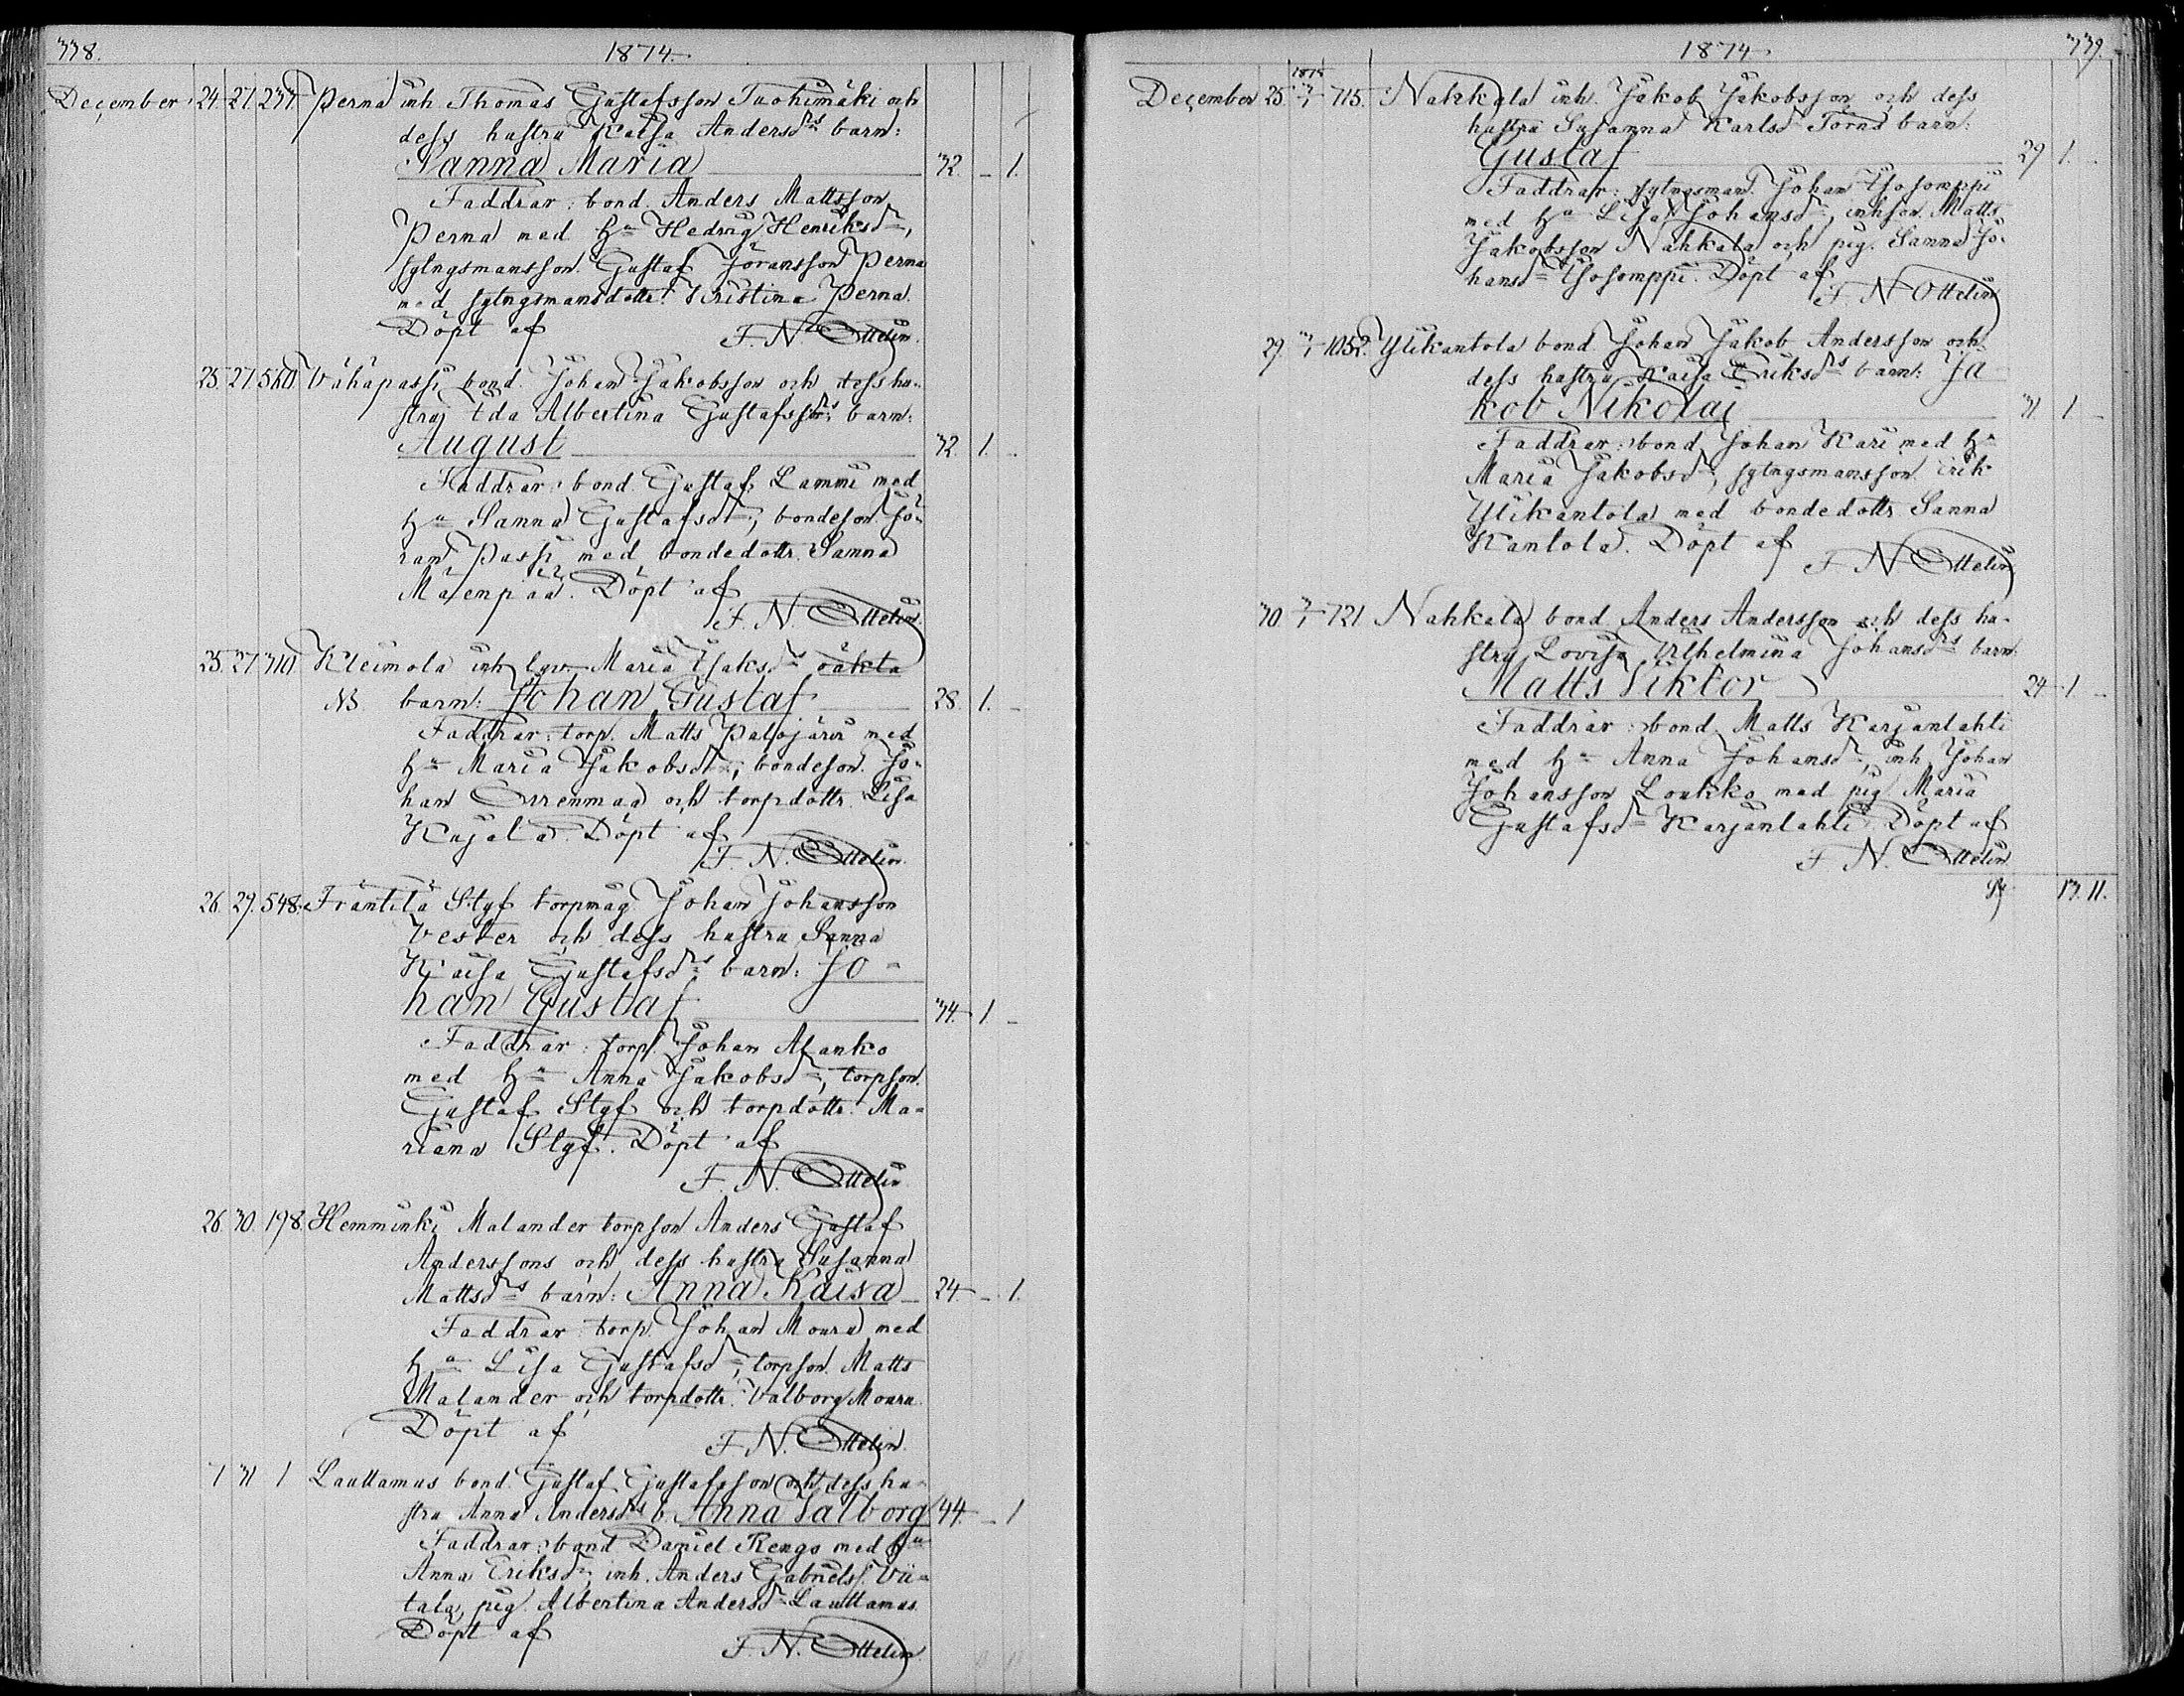 338.
1874.
December. 24. 27. 237. Perna inh. Thomas Gustafsson Tuohimäki och
dess hustru Kaisa Andersdrs barn:
Sanna Maria 32. - 1.
Faddrar: bond. Anders Mattsson
Perna med hu Hedvig Henriksdr,
sytngsmansson. Gustaf Jöransson Perna
med sytngsmansdottr. Kristina Perna.
Döpt af F. N. Ottelin.
25. 27. 560. Vähäpassi bond. Johan Jakobsson och dess hu-
stru Ida Albertina Gustafsdrs barn:
August 32. 1. -
Faddrar: bond. Gustaf Lammi med
hu Sanna Gustafsdr, bondeson Jö-
ran Passi med bondedottr. Sanna
Mäenpää. Döpt af
F. N. Ottelin.
25. 27. 310. Kleimola inh. lqv. Maria Isaksdrs oäkta
NB. barn: Johan Gustaf 28. 1. -
Faddrar: torp. Matts Palojärvi med
hu Maria Jakobsdr, bondeson. Jo-
han Orrenmaa och torpdottr. Lisa
Kujala. Döpt af
F. N. Ottelin.
26. 29. 548. Fräntilä Stgf torpmag Johan Johansson
Vester och dess hustru Sanna
Kaisa Gustafsdrs barn: Jo-
han Gustaf 34. 1. -
Faddrar: torp. Johan Alanko
med hu Anna Jakobsdr, torpson.
Gustaf Stgf och torpdottr. Ma-
riana Stgf. Döpt af
F. N. Ottelin.
26. 30. 198. Hemminki Malander torpson Anders Gustaf
Anderssons och dess hustru Susanna
Mattsdrs barn: Anna Kaisa 24. - 1.
Faddrar: torp. Johan Moura med
hu Lisa Gustafsdr, torpson. Matts
Malander och torpdottr. Valborg Moura.
Döpt af F. N. Ottelin.
7 31 1 Lauttamus bond. Gustaf Gustafsson och dess hu-
stru Anna Andersdrs b. Anna Valborg 44. - 1
Faddrar: bond Daniel Rengo med hu
Anna Eriksdr, inh. Anders Gabrielss. Vii-
tala, pig. Albertina Andersdr Lauttamus.
Döpt af F. N. Ottelin.
1874.
339.
1875
December 25. 3/1 715. Nahkala inh. Jakob Jakobsson och dess
hustru Susanna Karlsdr Törns barn:
Gustaf 29 1. -
Faddrar: sytngsman. Johan Isosomppi
med hu Lisa Johansdr, inhson. Matts
Jakobsson Nahkala och pig. Sanna Jo-
hansdr Isosomppi. Döpt af
F. N Ottelin
29. 3/1 1052. Ylikantola bond. Johan Jakob Andersson och
dess hustru Kaisa Eriksdrs barn: Ja-
kob Nikolai 31. 1 -
Faddrar: bond. Johan Kari med hu
Maria Jakobsdr, sytngsmansson Erik
Ylikantola med bondedottr Sanna
Kantola. Döpt af
F N Ottelin
30. 3/1 721 Nahkala bond. Anders Andersson och dess hu-
stru Lovisa Vilhelmina Johansdrs barn:
Matts Viktor 24 1. -
Faddrar: bond. Matts Karjanlahti
med hu Anna Johansdr, inh. Johan
Johansson Loukko med pig Maria
Gustafsdr Karjanlahti. Döpt af
F. N. Ottelin
13. 11.